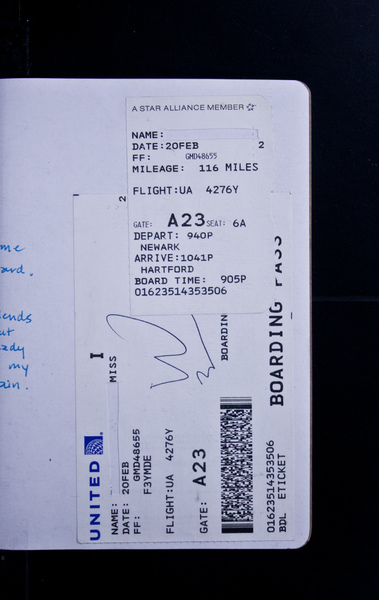 A STAR ALLIANCE MEMBER
NAME:
DATE:20FEB 2
FF: GMD48655
MILEAGE: 116 MILES
FLIGHT:UA 4276Y
GATE: A23 SEAT: 6A
DEPART: 940P
NEWARK
ARRIVE:1041P
HARTFORD
BOARD TIME: 905P
01623514353506
me
ard.
ends
ut
ady
my
ain.
2
UNITED
I
MISS
NAME:
DATE: 20FEB
FF: GMD48655
F3YMDE
FLIGHT:UA 4276Y
GATE: A23
BOARDIN
BOARDING PASS
01623514353506
BDL ETICKET